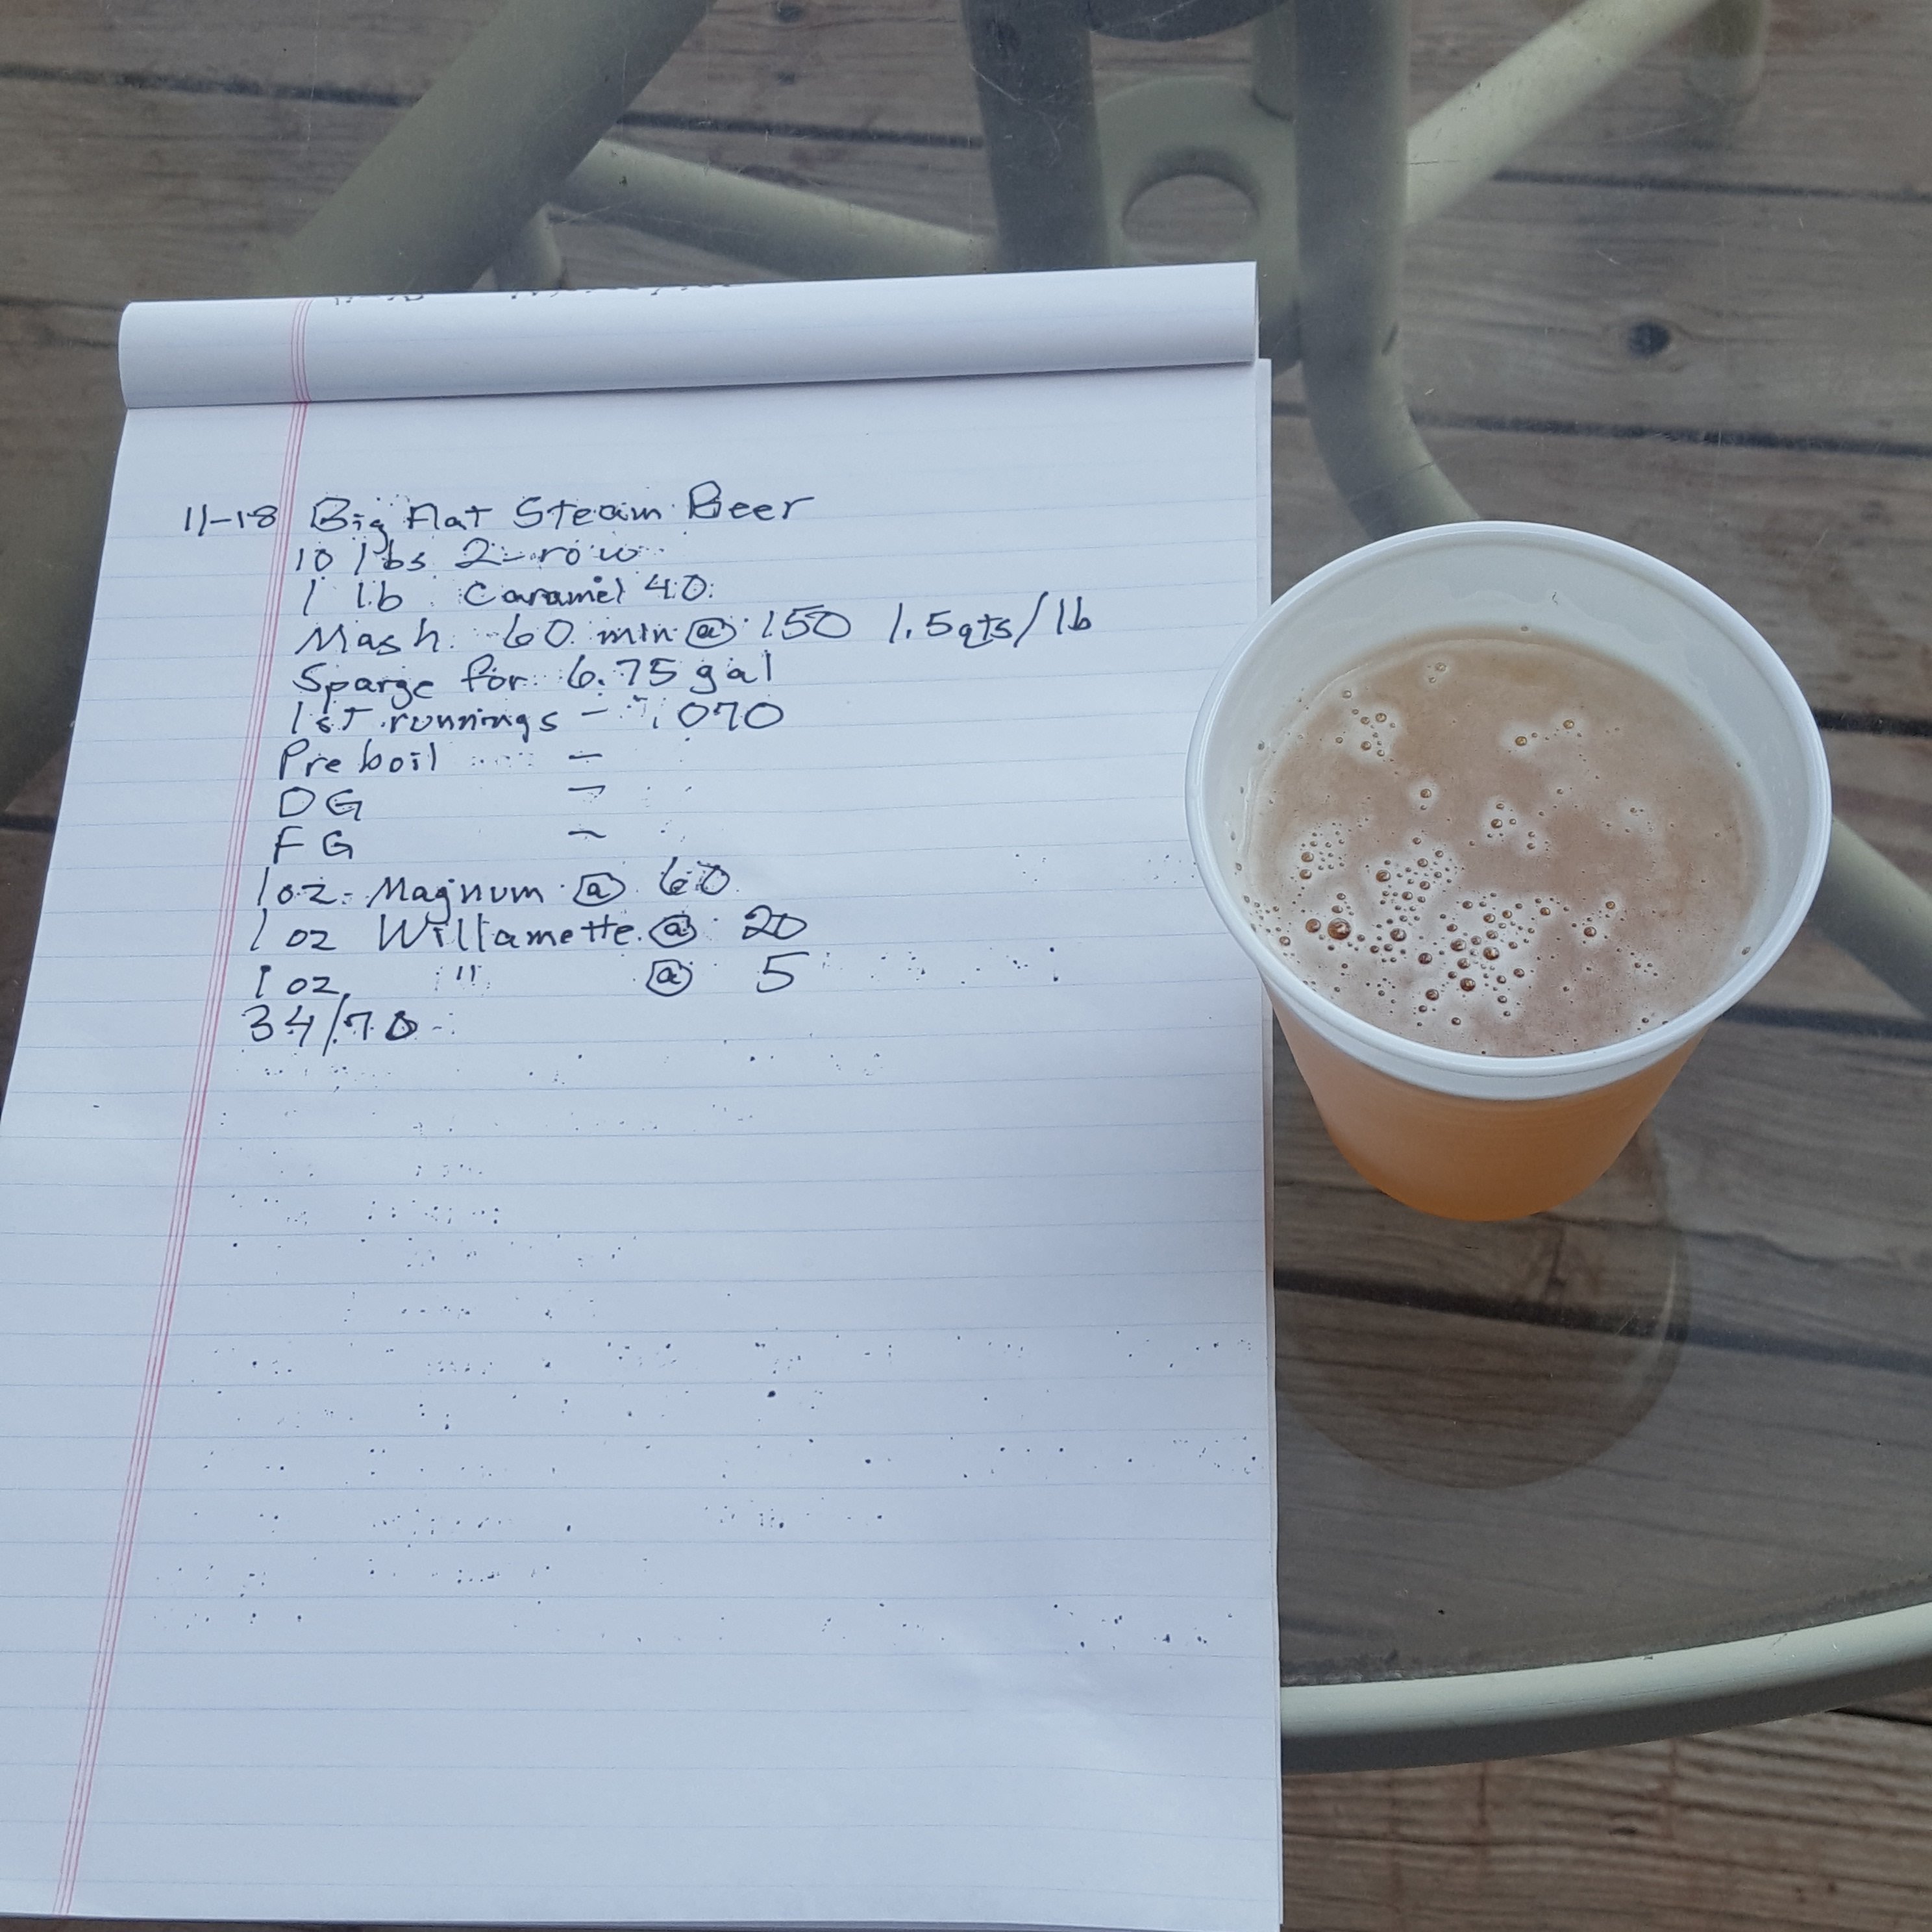 11-18 Big Flat Steam Beer
10 lbs 2-row
1 lb Caramel 40
Mash 60 min @ 150 1.5qts/lb
Sparge for 6.75 gal
1st runnings - 1.070
Pre boil -
OG -
FG -
1 oz. Magnum @ 60
1 oz Willamette @ 20
1 oz " @ 5
34/70